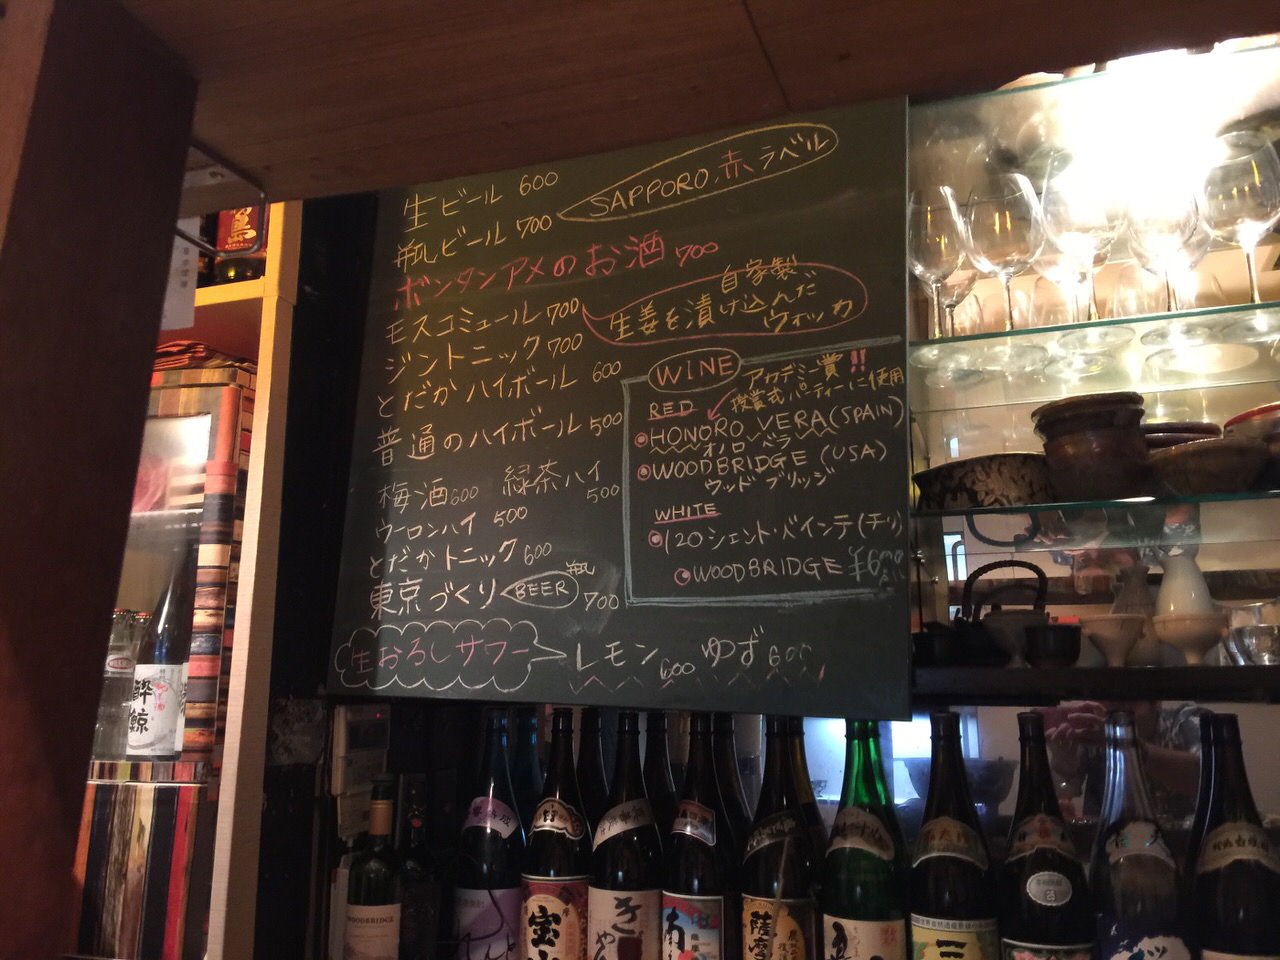 生ビール 600
瓶ビール 700
SAPPORO 赤ラベル
ボンタンアメのお酒 700
モスコミュール 700
自家製
生姜を漬け込んだ
ウォッカ
ジントニック 700
とだかハイボール 600
普通のハイボール 500
梅酒 600 緑茶ハイ 500
ウーロンハイ 500
とだかトニック 600
東京づくり BEER 瓶 700
生おろしサワー レモン 600 ゆず 600
WINE
アカデミー賞!!
授賞式パーティーに使用
RED
HONORO VERA (SPAIN)
オノロ ベラ
WOODBRIDGE (USA)
ウッドブリッジ
WHITE
120 シェント・バインテ (チリ)
WOODBRIDGE ¥600
酔鯨
WOODBRIDGE
宝山
薩摩